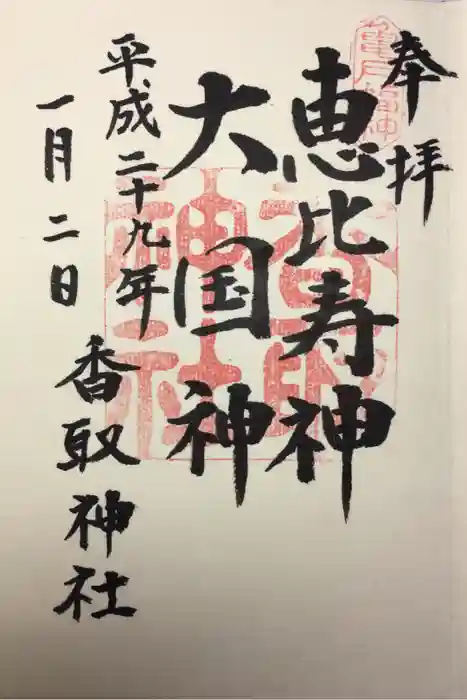 奉拝
恵比寿神
大国神
平成二十九年
一月二日
香取神社